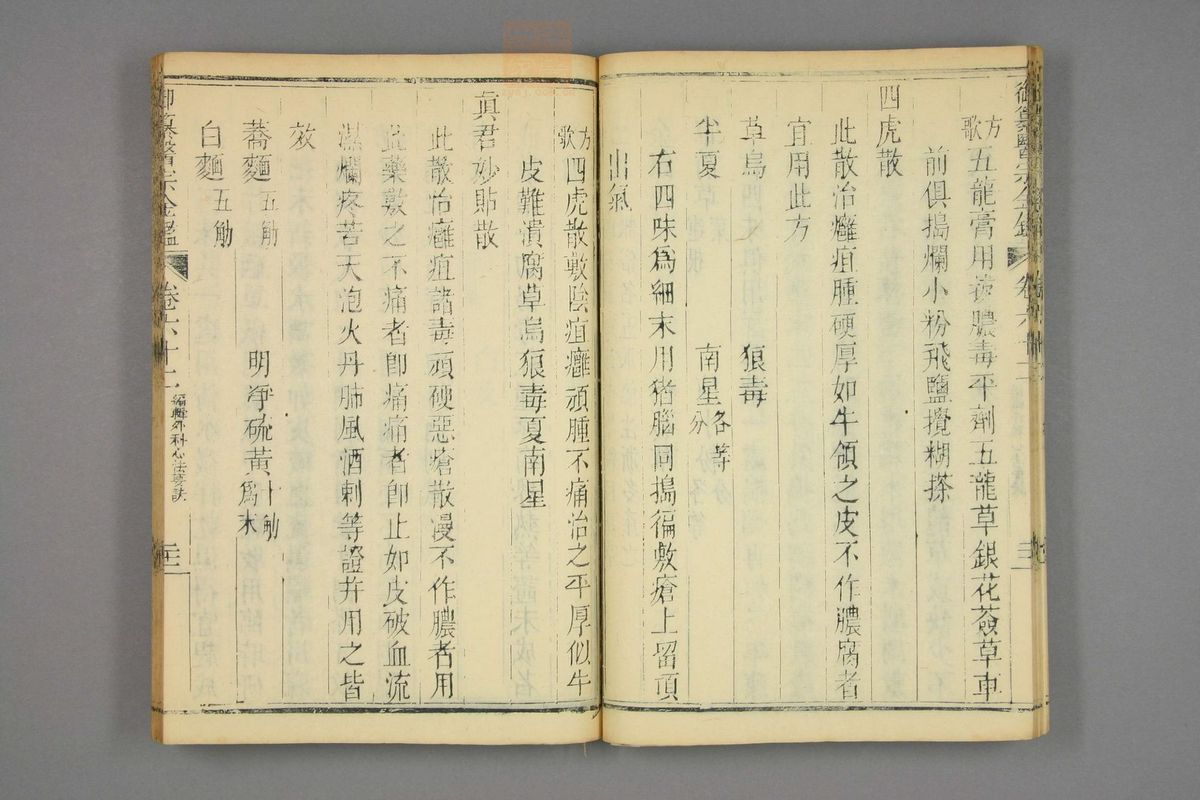 方歌五龍膏用拔膿毒平劑五龍草銀花薟草車
前俱搗爛小粉飛鹽攪糊搽
四虎散
此散治癰疽腫硬厚如牛領之皮不作膿腐者
宜用此方
草烏 狼毒
半夏 南星各等分
右四味爲細末用猪腦同搗徧敷瘡上留頂
出氣
方歌四虎散敷陰疽癰頑腫不痛治之平厚似牛
皮難潰腐草烏狼毒夏南星
眞君妙貼散
此散治癰疽諸毒頑硬惡瘡散漫不作膿者用
此藥敷之不痛者卽痛痛者卽止如皮破血流
濕爛疼苦天泡火丹肺風酒刺等證并用之皆
效
蕎麵五觔 明淨硫黃十觔爲末
白麵五觔
御纂醫宗金鑑 卷六十二 編輯外科心法要訣